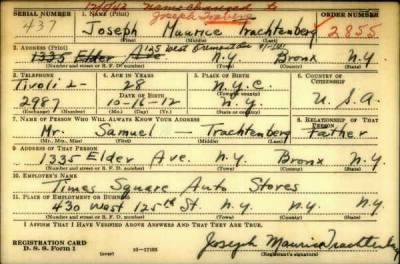 12/5/42 Name changed to
Joseph
SERIAL NUMBER 1. NAME (Print) ORDER NUMBER
437 Joseph Maurice Trachtenberg 2855
(First) (Middle) (Last)
2. ADDRESS (Print) 125 West
1335 Elder Ave N.Y. Bronx N.Y.
(Number and street or R. F. D. number) (Town) (County) (State)
3. TELEPHONE 4. AGE IN YEARS 5. PLACE OF BIRTH 6. COUNTRY OF CITIZENSHIP
Tivoli 2- 28 N.Y.C.
DATE OF BIRTH (Town or county)
2987 10-16-12 N.Y. U.S.A.
(Exchange) (Number) (Mo.) (Day) (Yr.) (State or country)
7. NAME OF PERSON WHO WILL ALWAYS KNOW YOUR ADDRESS 8. RELATIONSHIP OF THAT PERSON
Mr. Samuel — Trachtenberg Father
(Mr., Mrs., Miss) (First) (Middle) (Last)
9. ADDRESS OF THAT PERSON
1335 Elder Ave. N.Y. Bronx N.Y.
(Number and street or R. F. D. number) (Town) (County) (State)
10. EMPLOYER'S NAME
Times Square Auto Stores
11. PLACE OF EMPLOYMENT OR BUSINESS
430 West 125th St. N.Y. N.Y. N.Y.
(Number and street or R. F. D. number) (Town) (County) (State)
I AFFIRM THAT I HAVE VERIFIED ABOVE ANSWERS AND THAT THEY ARE TRUE.
REGISTRATION CARD
D. S. S. Form 1 (over) Joseph Maurice Trachtenberg
(Registrant's signature)